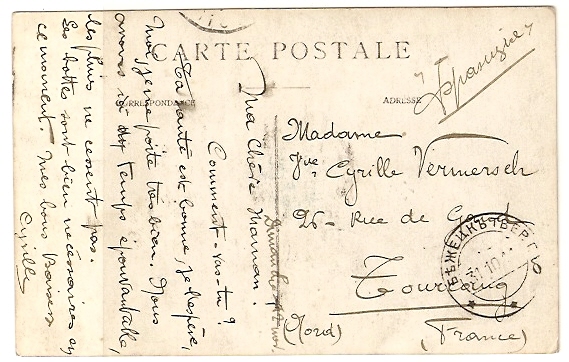 CARTE POSTALE
CORRESPONDANCE
ADRESSE
Франція
Ma Chère Maman.
Comment vas-tu?
Ta santé est bonne, je l'espère,
Moi je me porte très bien. Nous
avons ici du temps épouvantable,
les pluies ne cessent pas.
Les bottes sont bien nécessaires en
ce moment. Mes bons Baisers
Cyrille
Dimanche
Madame
Vve Cyrille Vermersch
26 - Rue de Gand
Tourcoing
(Nord) (France)
БѢЖЕЦКЪ ТВЕР. Г.
31.10